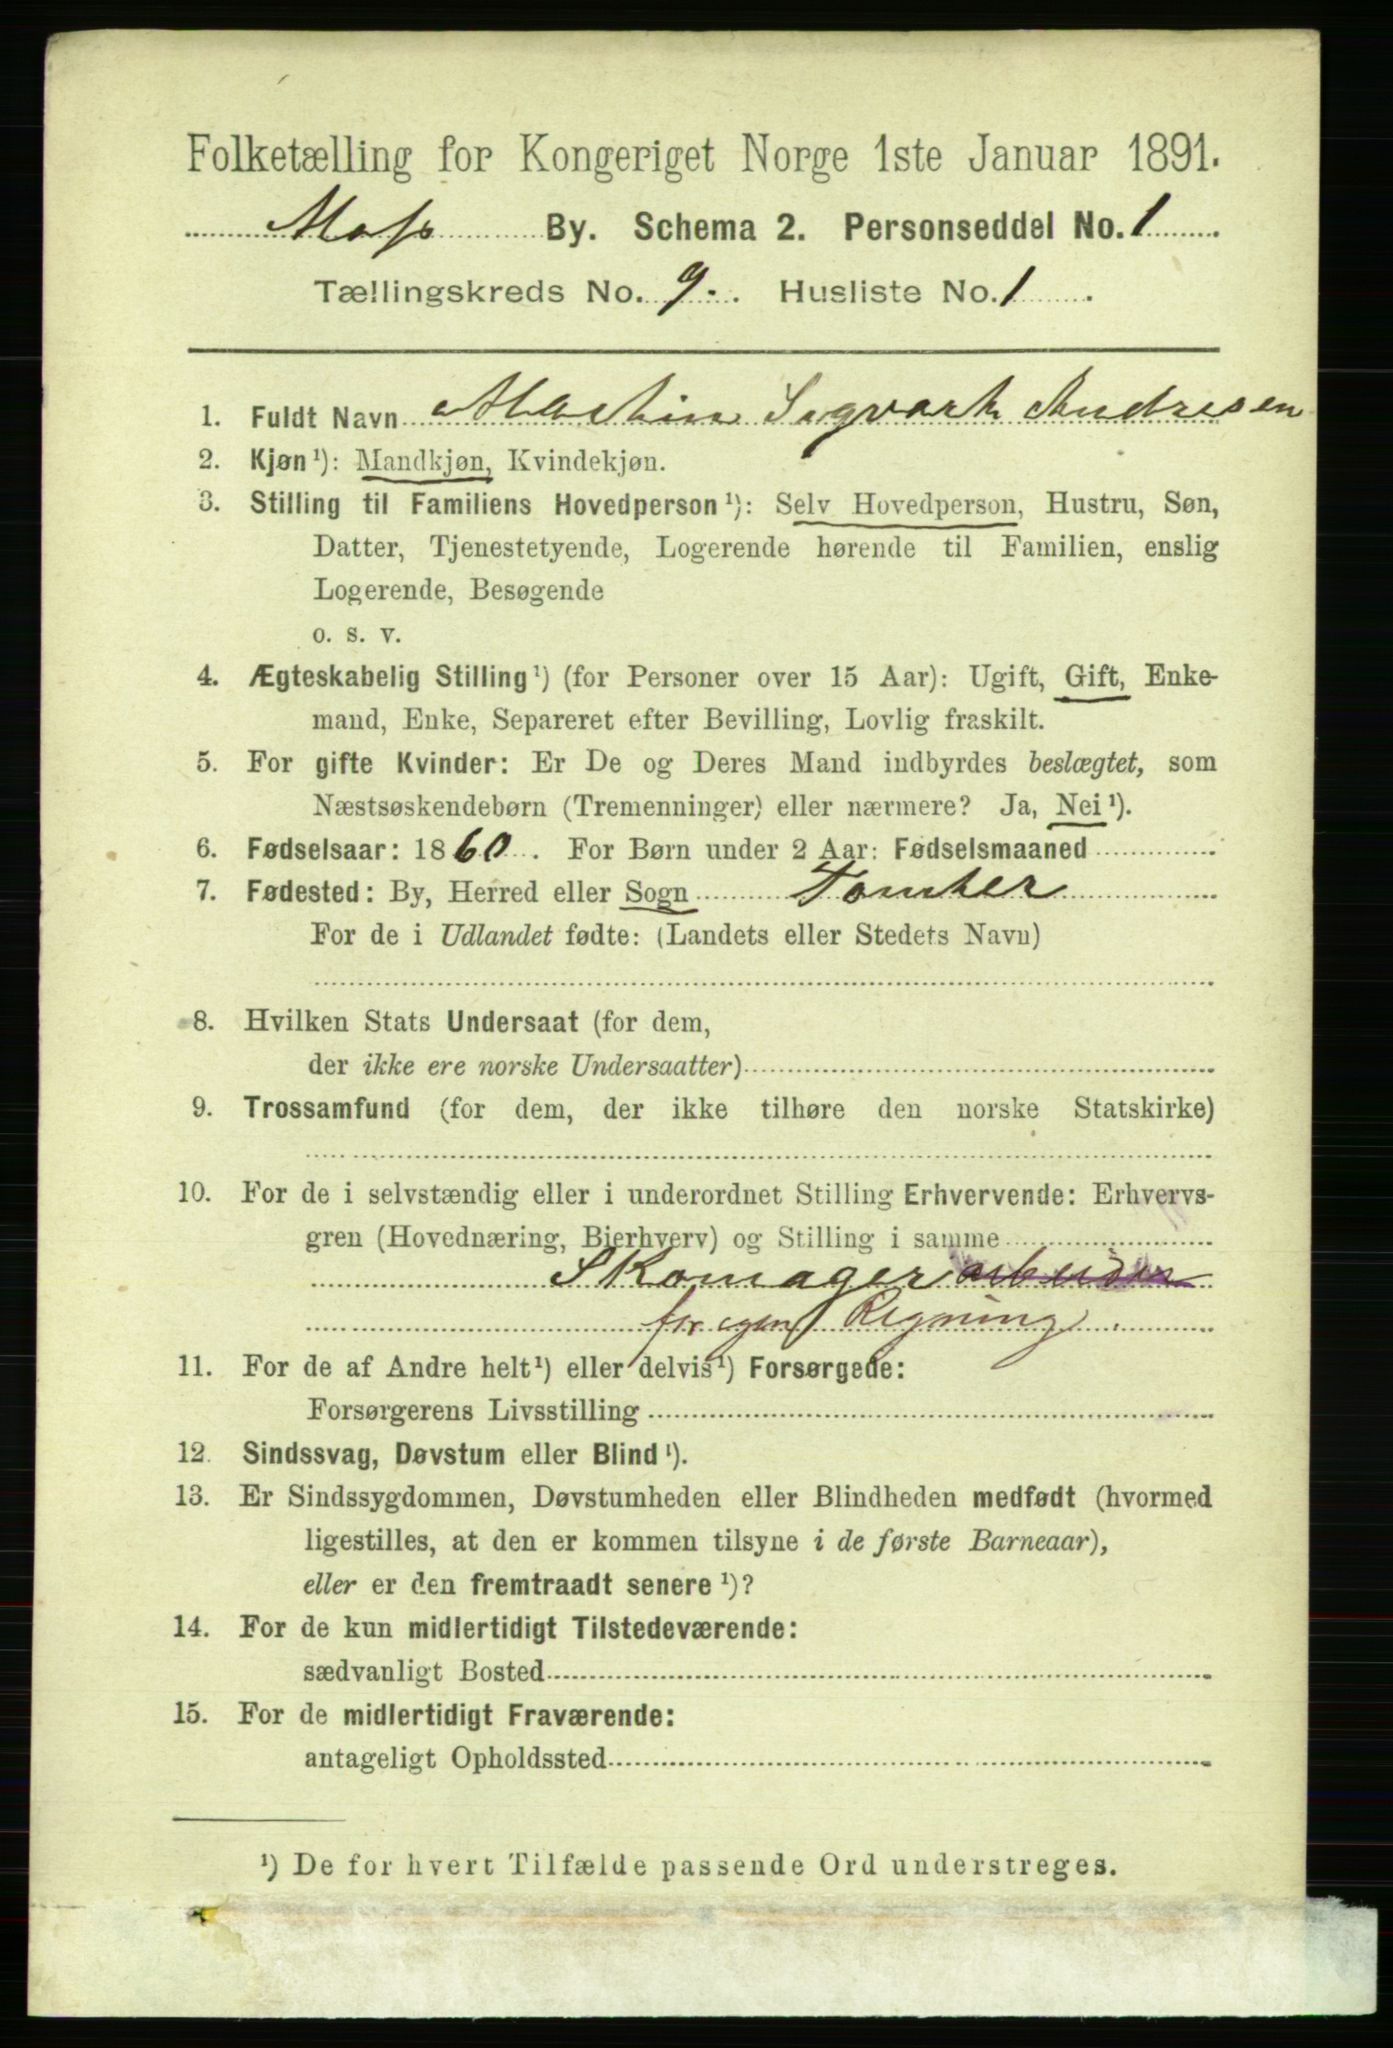 Folketælling for Kongeriget Norge 1ste Januar 1891.
Moss By. Schema 2. Personseddel No. 1
Tællingskreds No. 9. Husliste No. 1
1. Fuldt Navn Martin Sigvart Andresen
2. Kjøn¹): Mandkjøn, Kvindekjøn.
3. Stilling til Familiens Hovedperson¹): Selv Hovedperson, Hustru, Søn,
Datter, Tjenestetyende, Logerende hørende til Familien, enslig
Logerende, Besøgende
o. s. v.
4. Ægteskabelig Stilling¹) (for Personer over 15 Aar): Ugift, Gift, Enke-
mand, Enke, Separeret efter Bevilling, Lovlig fraskilt.
5. For gifte Kvinder: Er De og Deres Mand indbyrdes beslægtet, som
Næstsøskendebørn (Tremenninger) eller nærmere? Ja, Nei¹).
6. Fødselsaar: 1860. For Børn under 2 Aar: Fødselsmaaned
7. Fødested: By, Herred eller Sogn Tomter
For de i Udlandet fødte: (Landets eller Stedets Navn)
8. Hvilken Stats Undersaat (for dem,
der ikke ere norske Undersaatter)
9. Trossamfund (for dem, der ikke tilhøre den norske Statskirke)
10. For de i selvstændig eller i underordnet Stilling Erhvervende: Erhvervs-
gren (Hovednæring, Bierhverv) og Stilling i samme
Skomager arbeider
for egen Regning.
11. For de af Andre helt¹) eller delvis¹) Forsørgede:
Forsørgerens Livsstilling
12. Sindssvag, Døvstum eller Blind¹).
13. Er Sindssygdommen, Døvstumheden eller Blindheden medfødt (hvormed
ligestilles, at den er kommen tilsyne i de første Barneaar),
eller er den fremtraadt senere¹)?
14. For de kun midlertidigt Tilstedeværende:
sædvanligt Bosted
15. For de midlertidigt Fraværende:
antageligt Opholdssted
¹) De for hvert Tilfælde passende Ord understreges.